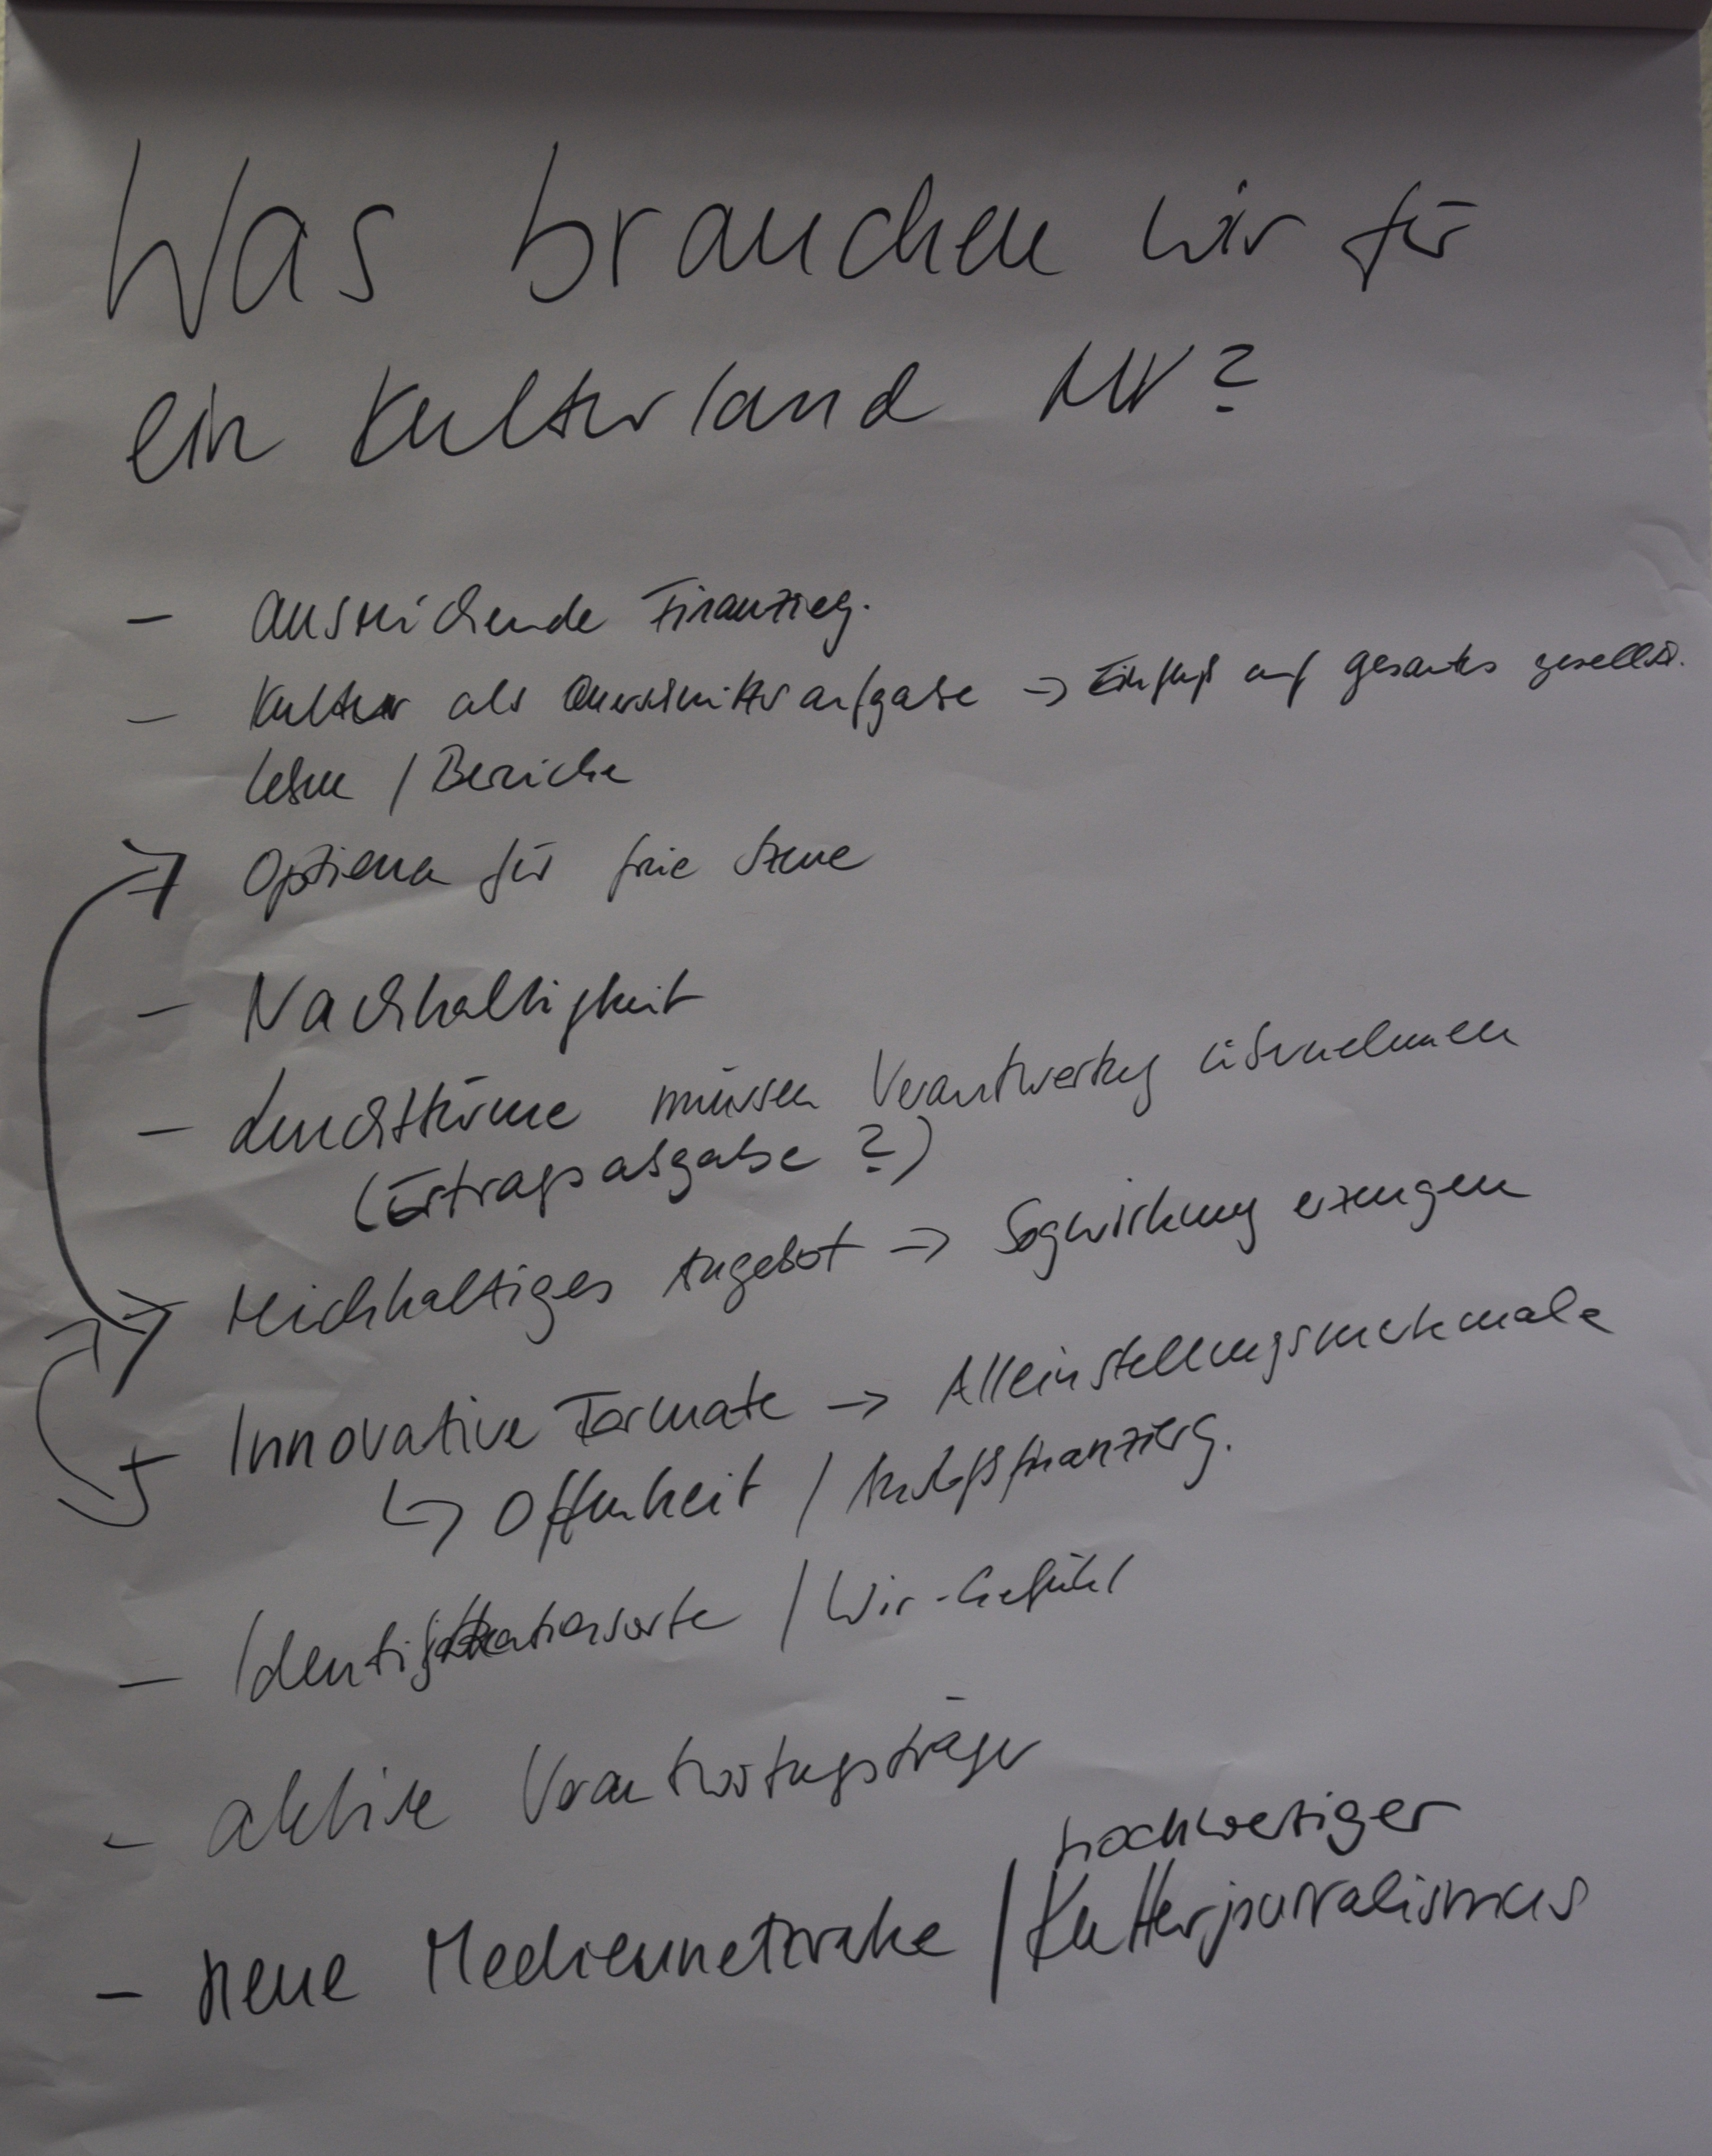 Was brauchen wir für
ein Kulturland MV?
- ausreichende Finanzierg.
- Kultur als Querschnittsaufgabe → Einfluß auf gesamtes gesellsch.
Leben / Bereiche
Optionen für freie Szene
- Nachhaltigkeit
- Leuchttürme müssen Verantwortung übernehmen
(Ertragsabgabe?)
reichhaltiges Angebot → Sogwirkung erzeugen
Innovative Formate → Alleinstellungsmerkmale
↳ Offenheit / Anschubfinanzierg.
- Identifikationsorte / Wir-Gefühl
- aktive Verantwortungsträger
hochwertiger
- neue Mediennetzwerke / Kulturjournalismus